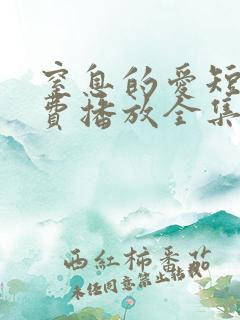 窒息的爱短
费播放全集
西红柿番茄
未经同意禁止转载